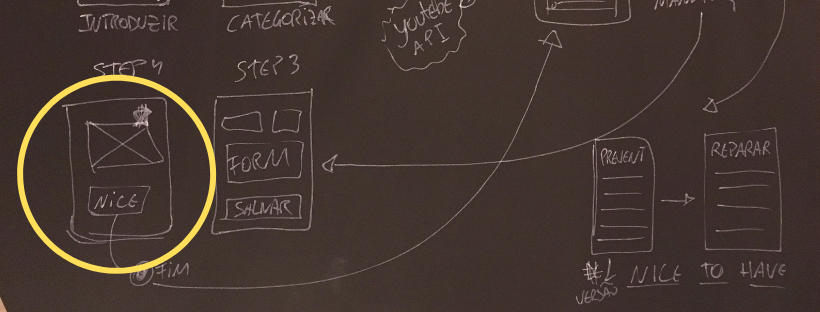 INTRODUZIR
CATEGORIZAR
youtube
API
STEP 4
STEP 3
FORM
SALVAR
NICE
FIM
PREVENT
REPARAR
#1
VERSÃO
NICE TO HAVE